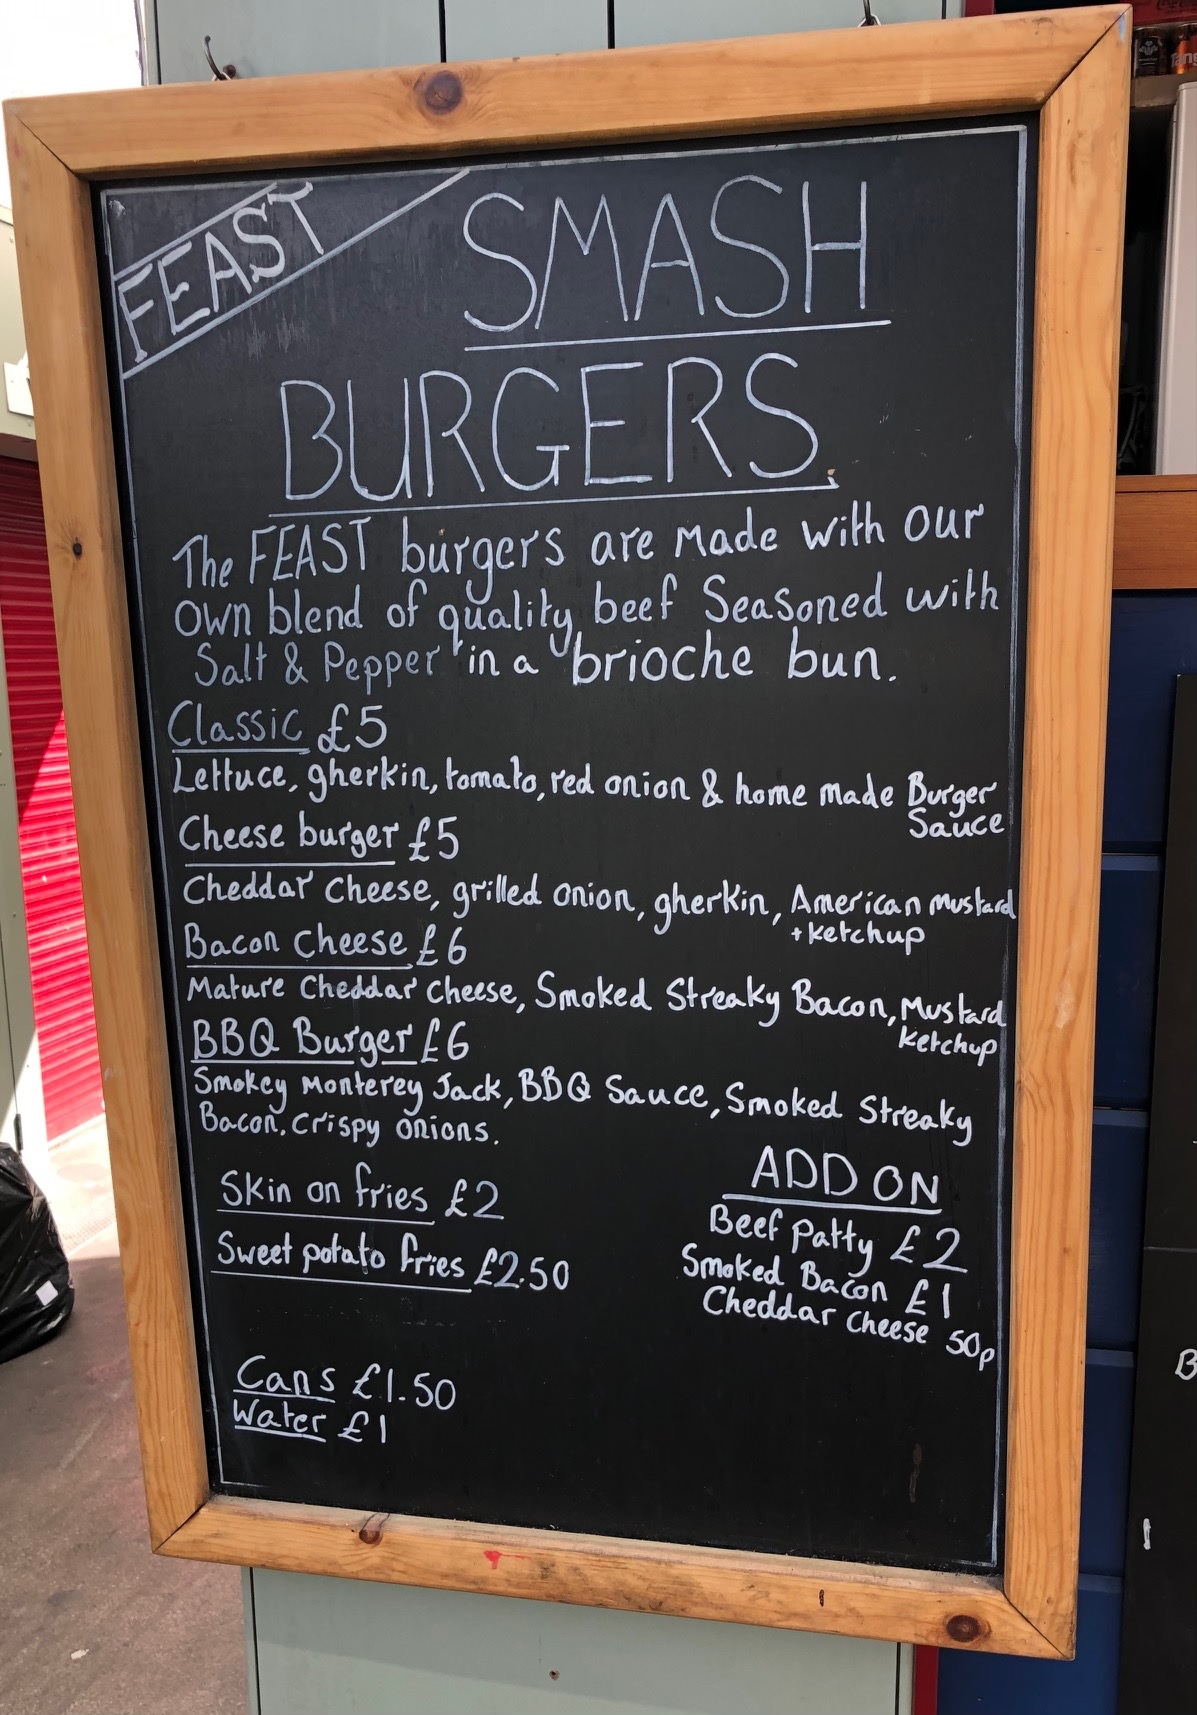 FEAST
SMASH
BURGERS.
The FEAST burgers are made with our
own blend of quality beef Seasoned with
Salt & Pepper in a brioche bun.
Classic £5
Lettuce, gherkin, tomato, red onion & home made Burger
Sauce
Cheese burger £5
Cheddar Cheese, grilled onion, gherkin, American mustard
+ ketchup
Bacon Cheese £6
Mature Cheddar Cheese, Smoked Streaky Bacon, Mustard
ketchup
BBQ Burger £6
Smokey Monterey Jack, BBQ Sauce, Smoked Streaky
Bacon, Crispy onions.
Skin on fries £2
Sweet potato fries £2.50
ADD ON
Beef Patty £2
Smoked Bacon £1
Cheddar Cheese 50p
Cans £1.50
Water £1